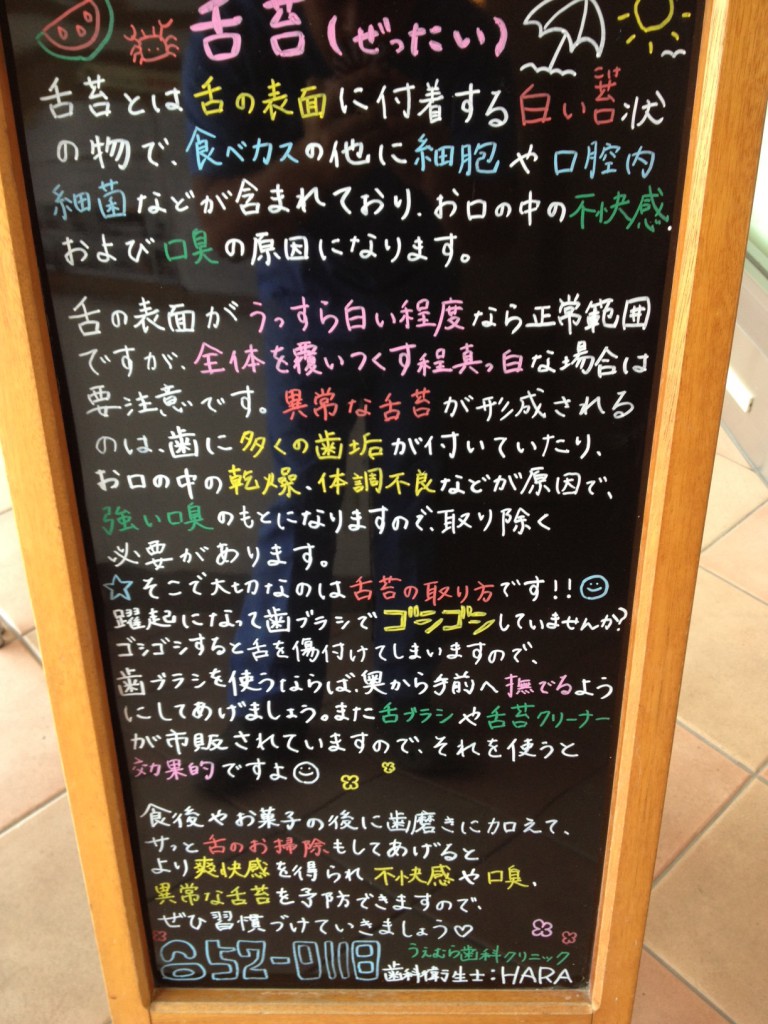 舌苔(ぜったい)
舌苔とは舌の表面に付着する白い苔状
の物で、食べカスの他に細胞や口腔内
細菌などが含まれており、お口の中の不快感、
および口臭の原因になります。
舌の表面がうっすら白い程度なら正常範囲
ですが、全体を覆いつくす程真っ白な場合は
要注意です。異常な舌苔が形成される
のは、歯に多くの歯垢が付いていたり、
お口の中の乾燥、体調不良などが原因で、
強い口臭のもとになりますので、取り除く
必要があります。
☆そこで大切なのは舌苔の取り方です!!
躍起になって歯ブラシでゴシゴシしていませんか?
ゴシゴシすると舌を傷付けてしまいますので、
歯ブラシを使うならば、奥から手前へ撫でるよう
にしてあげましょう。また舌ブラシや舌苔クリーナー
が市販されていますので、それを使うと
効果的ですよ
食後やお菓子の後に歯磨きに加えて、
サッと舌のお掃除もしてあげると
より爽快感を得られ不快感や口臭、
異常な舌苔を予防できますので、
ぜひ習慣づけていきましょう♡
652-0118
うえむら歯科クリニック
歯科衛生士:HARA